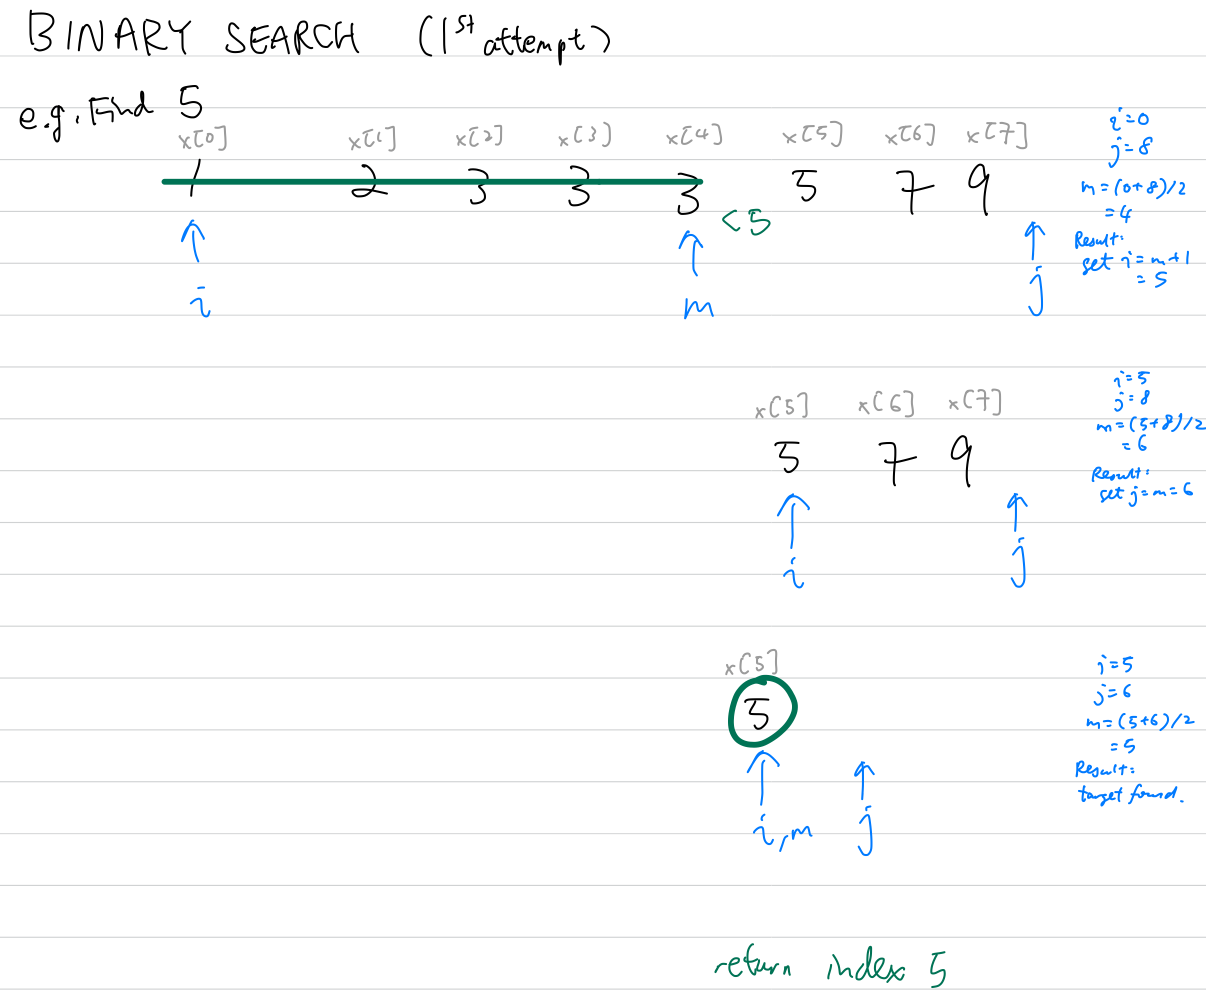 BINARY SEARCH (1st attempt)
e.g. Find 5
x[0] x[1] x[2] x[3] x[4] x[5] x[6] x[7]
1 2 3 3 3 5 7 9
<5
i m j
i=0
j=8
m=(0+8)/2
=4
Result:
set i=m+1
=5
x[5] x[6] x[7]
5 7 9
i j
i=5
j=8
m=(5+8)/2
=6
Result:
set j=m=6
x[5]
5
i,m j
i=5
j=6
m=(5+6)/2
=5
Result:
target found.
return index 5